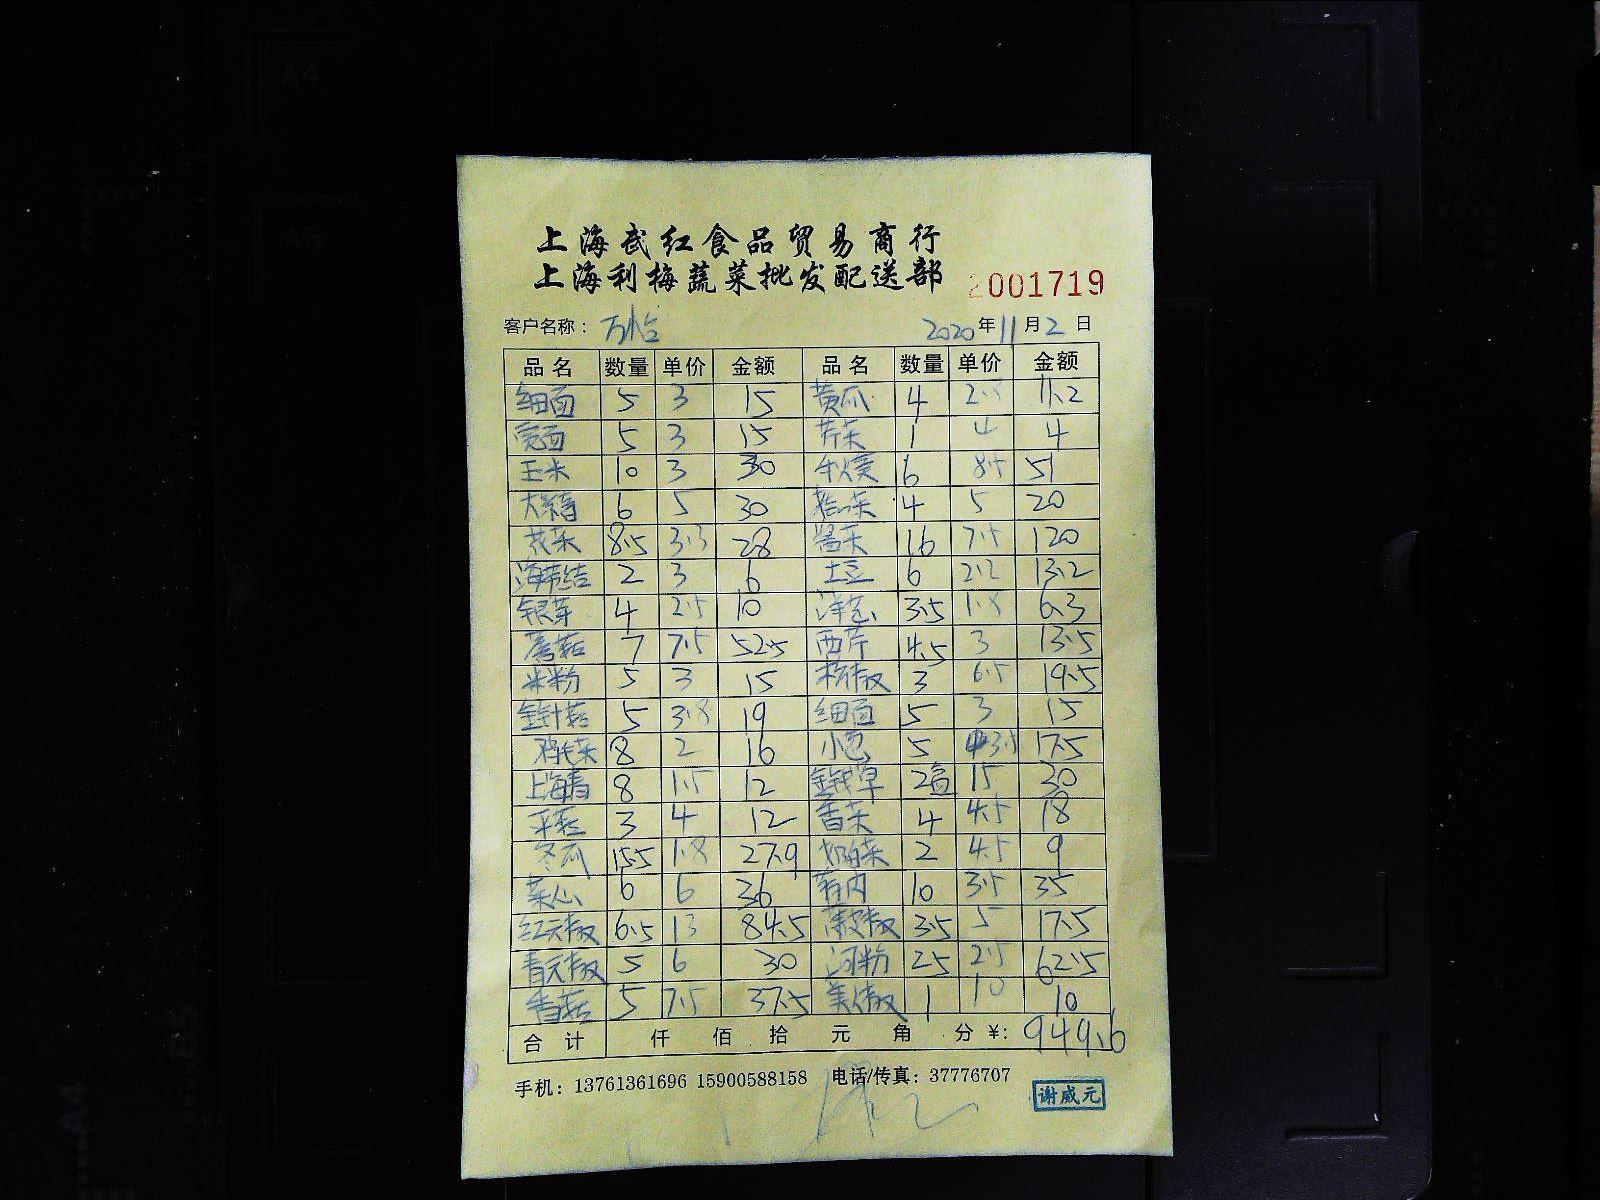 上海武红食品贸易商行
上海利梅蔬菜批发配送部 2001719
客户名称： 万怡 2020年11月2日
品名 数量 单价 金额 品名 数量 单价 金额
细面 5 3 15 黄瓜 4 2.8 11.2
宽面 5 3 15 芹菜 1 4 4
玉米 10 3 30 6 8.5 51
6 5 30 4 5 20
花菜 8.5 3.3 28 16 7.5 120
海带结 2 3 6 土豆 6 2.2 13.2
银芽 4 2.5 10 洋葱 3.5 1.8 6.3
蘑菇 7 7.5 52.5 西芹 4.5 3 13.5
米粉 5 3 15 杭椒 3 6.5 19.5
金针菇 5 3.8 19 细面 5 3 15
鸡毛菜 8 2 16 小葱 5 3.5 17.5
上海青 8 1.5 12 金钱草 2盒 15 30
平菇 3 4 12 香菜 4 4.5 18
冬瓜 15.5 1.8 27.9 奶白菜 2 4.5 9
菜心 6 6 36 10 3.5 35
红元椒 6.5 13 84.5 薄皮椒 3.5 5 17.5
青元椒 5 6 30 河粉 25 2.5 62.5
香菇 5 7.5 37.5 美人椒 1 10 10
合计 仟 佰 拾 元 角 分 ¥: 949.6
手机：13761361696 15900588158 电话/传真：37776707
谢威元
A4
A5
B5
A4